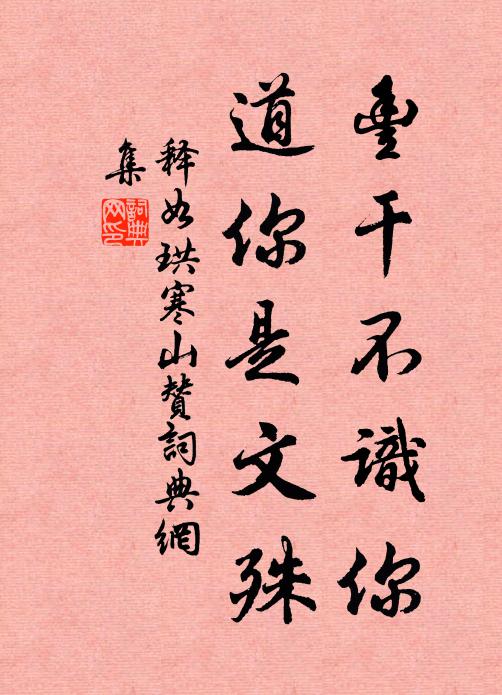 豐干不識你
道你是文殊
释如珙寒山贊詞典網
集
詞典網印